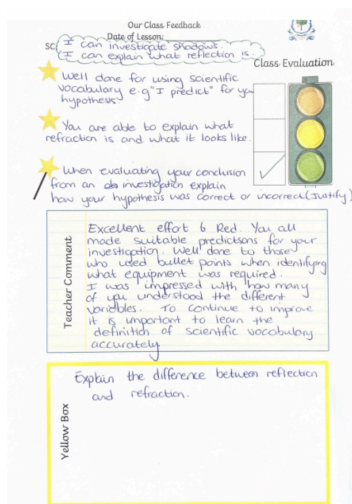 Our Class Feedback
Date of Lesson:
SC: I can investigate shadows.
I can explain what reflection is.
Class Evaluation
Well done for using scientific
vocabulary e.g "I predict" for your
hypothesis
You are able to explain what
refraction is and what it looks like.
When evaluating your conclusion
from an investigation explain
how your hypothesis was correct or incorrect (Justify)
Teacher Comment
Excellent effort 6 Red. You all
made suitable predictions for your
investigation. Well done to those
who used bullet points when identifying
what equipment was required.
I was impressed with how many
of you understood the different
variables. To continue to improve
it is important to learn the
definition of scientific vocabulary
accurately
Yellow Box
Explain the difference between reflection
and refraction.